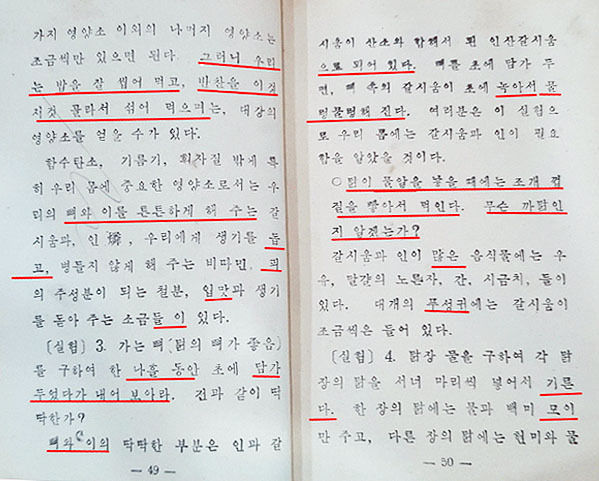 가지 영양소 이외의 나머지 영양소는
조금씩만 있으면 된다. 그러니 우리
는 밥을 잘 씹어 먹고, 반찬을 이것
저것 골라서 섞어 먹으며는, 대강의
영양소를 얻을 수가 있다.
함수탄소, 기름기, 흰자질 밖에 특
히 우리 몸에 중요한 영양소로서는 우
리의 뼈와 이를 튼튼하게 해 주는 갈
시움과, 인 燐, 우리에게 생기를 돕
고, 병들지 않게 해 주는 비따민, 피
의 주성분이 되는 철분, 입맛과 생기
를 돋아 주는 소금들 이 있다.
[실험] 3. 가는 뼈 [닭의 뼈가 좋음)
를 구하여 한 나흘 동안 초에 담가
두었다가 내어 보아라. 전과 같이 딱
딱한가?
뼈와 이의 딱딱한 부분은 인과 갈
— 49 —
시움이 산소와 합해서 된 인산갈시움
으로 되어 있다. 뼈를 초에 담가 두
면, 뼈 속의 갈시움이 초에 녹아서 물
렁물렁해 진다. 여러분은 이 실험으
로 우리 몸에는 갈시움과 인이 필요
함을 알았을 것이다.
○닭이 물알을 낳을 때에는 조개 껍
질을 빻아서 먹인다. 무슨 까닭인
지 알겠는가?
갈시움과 인이 많은 음식물에는 우
유, 달걀의 노른자, 간, 시금치, 들이
있다. 대개의 푸성귀에는 갈시움이
조금씩은 들어 있다.
[실험] 4. 닭장 둘을 구하여 각 닭
장의 닭을 서너 마리씩 넣어서 기른
다. 한 장의 닭에는 물과 백미 모이
만 주고, 다른 장의 닭에는 현미와 물
— 50 —